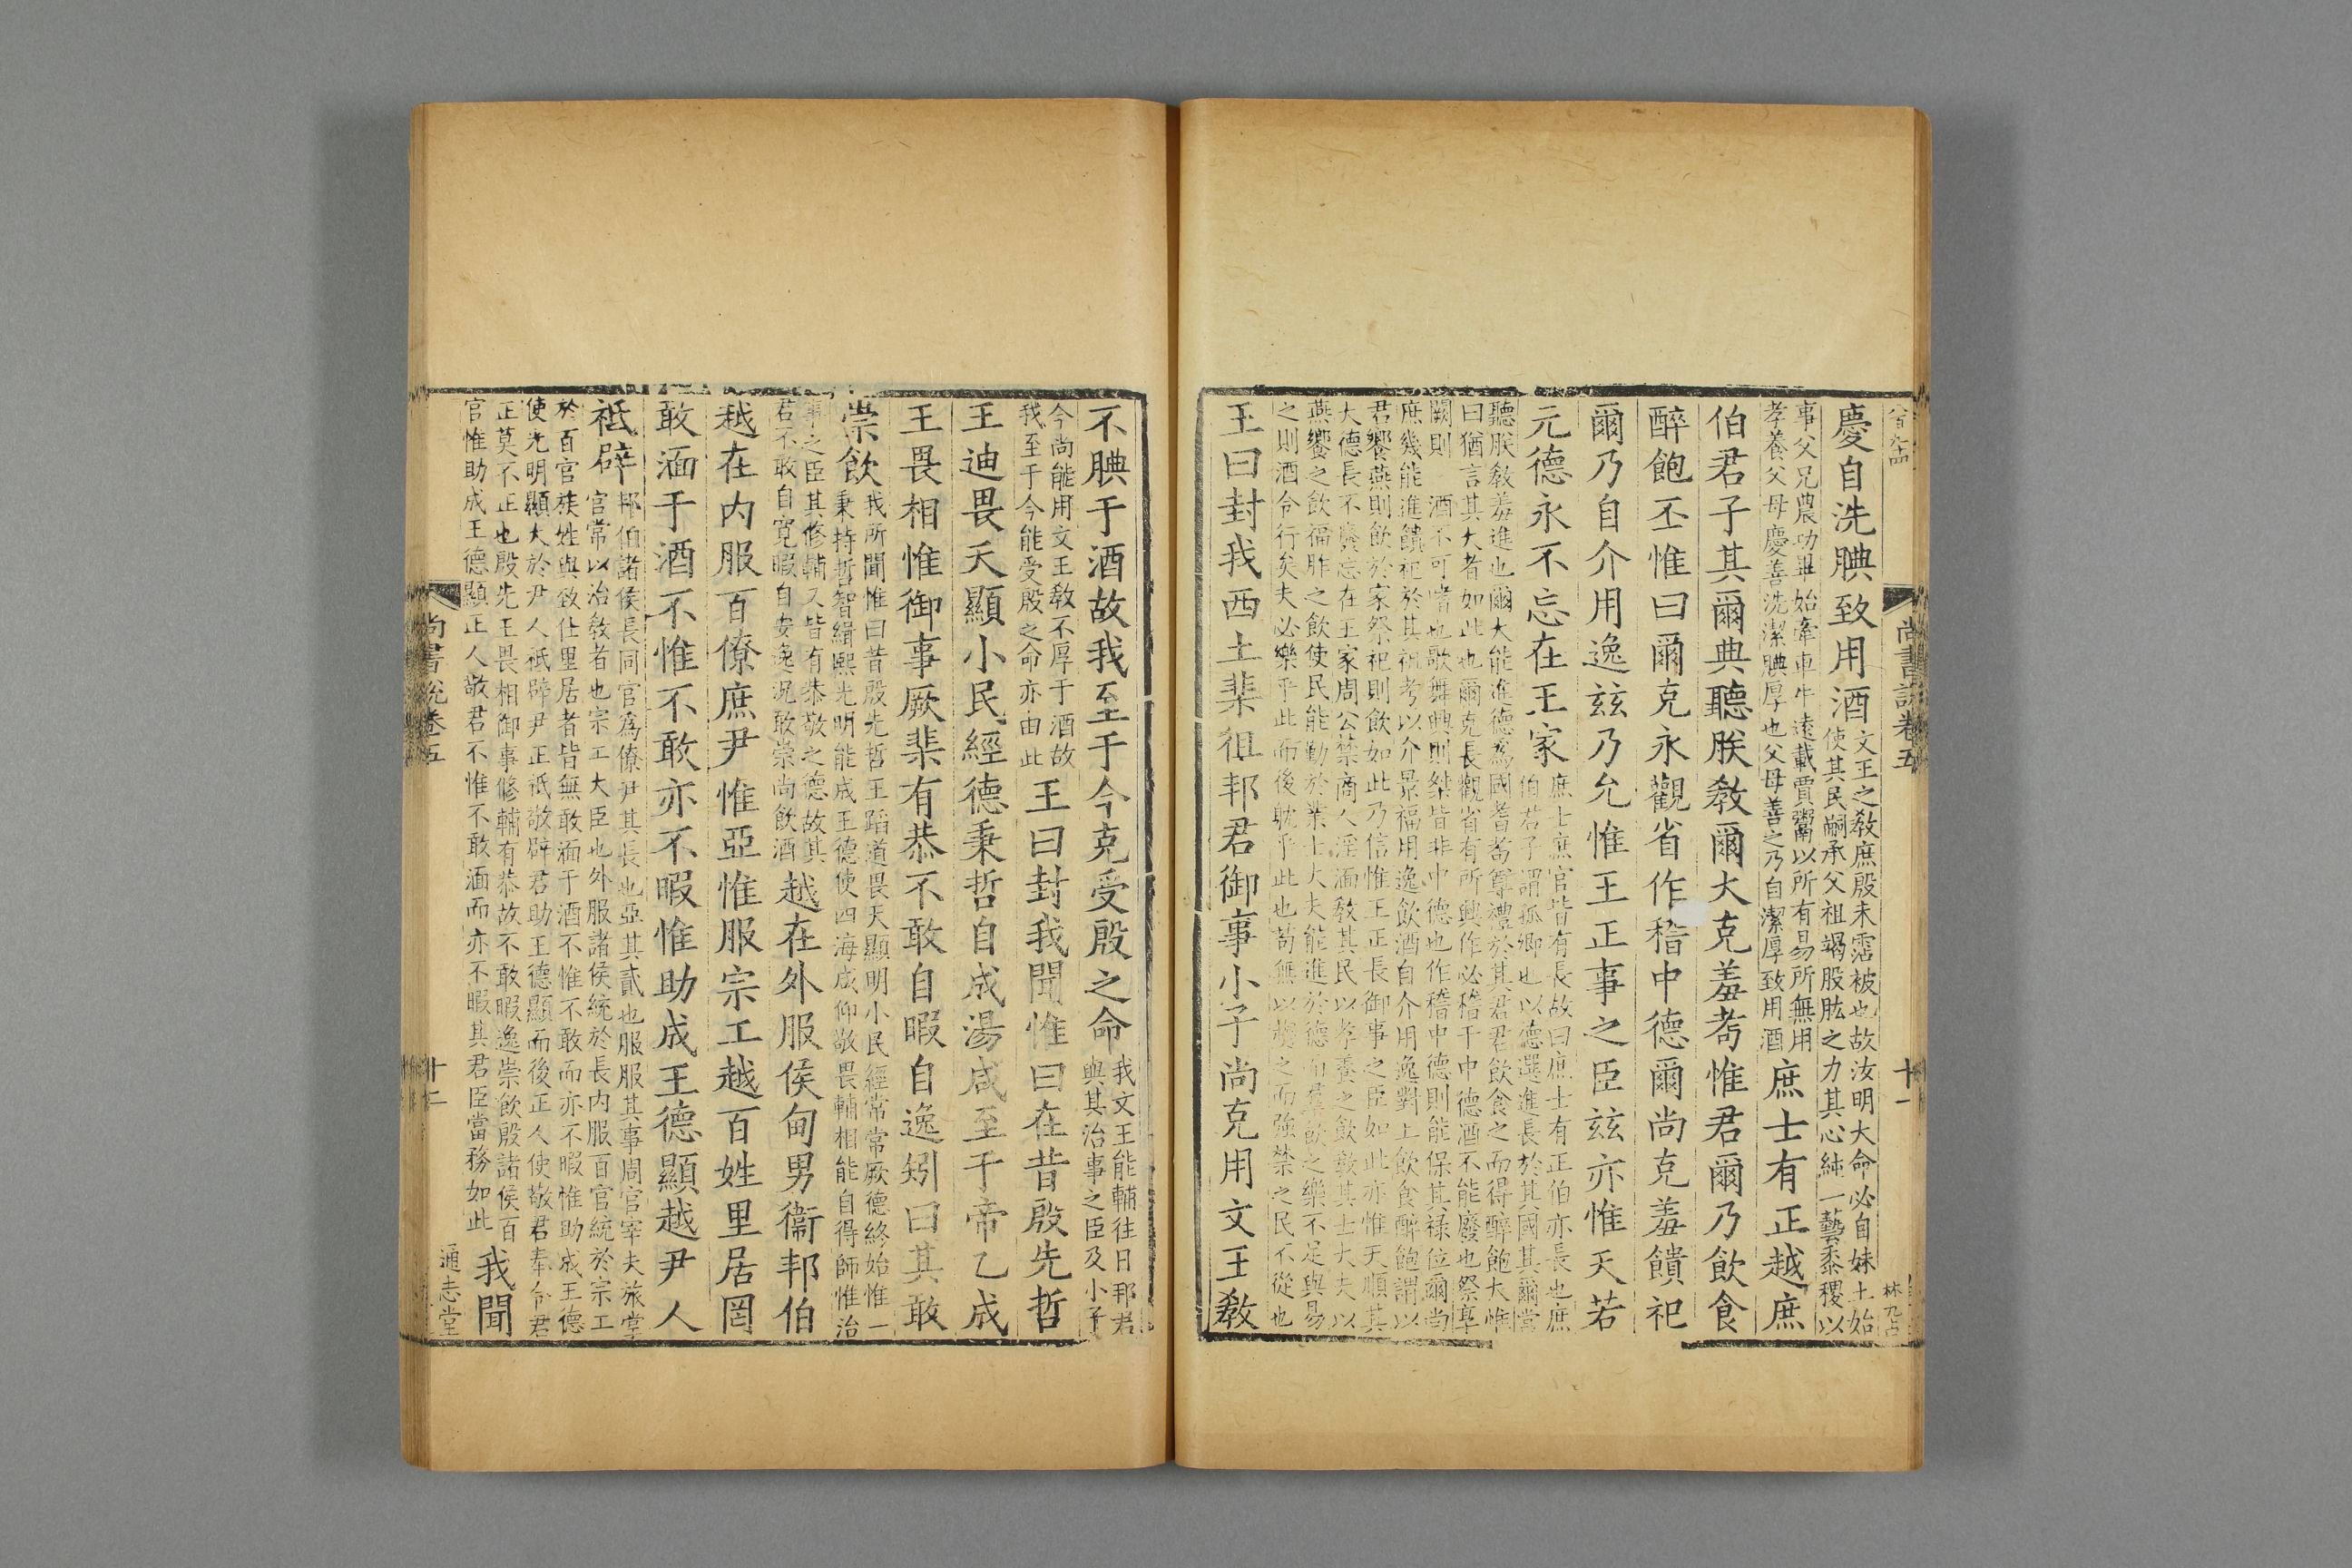 尚書說卷五
十一
慶自洗腆致用酒
文王之敎庶殷未霑被也故汝明大命必自妹土始
使其民嗣承父祖竭股肱之力其心純一藝黍稷以
事父兄農功畢始牽車牛遠載賈鬻以所有易所無用
孝養父母慶善洗潔腆厚也父母善之乃自潔厚致用酒
庶士有正越庶
伯君子其爾典聽朕敎爾大克羞耇惟君爾乃飲食
醉飽丕惟曰爾克永觀省作稽中德爾尚克羞饋祀
爾乃自介用逸茲乃允惟王正事之臣茲亦惟天若
元德永不忘在王家
庶士庶官皆有長故曰庶士有正伯亦長也庶
伯君子謂孤卿也以德選進長於其國其爾當
聽朕敎羞進也爾大能進德爲國耆耇尊禮於其君君飲食之而得醉飽大惟
曰猶言其大者如此也爾克長觀省有所興作必稽于中德酒不能廢也祭享
闕則 酒不可嗜也歌舞興則桀皆非中德也作稽中德則能保其祿位爾尚
庶幾能進饋祀於其祖考以介景福用逸飲酒自介用逸對上飲食醉飽謂以
君饗燕則飲於家祭祀則飲如此乃信惟王正長御事之臣如此亦惟天順其
大德長不廢忘在王家周公禁商人淫湎敎其民以孝養之飲敎其士大夫以
燕饗之飲福胙之飲使民能勤於業士大夫能進於德而羣飲之樂不足與易
之則酒令行矣夫必樂乎此而後耽乎此也苟無以變之而強禁之民不從也
王曰封我西土棐徂邦君御事小子尚克用文王敎
不腆于酒故我至于今克受殷之命
我文王能輔往日邦君
與其治事之臣及小子
今尚能用文王敎不厚于酒故
我至于今能受殷之命亦由此
王曰封我聞惟曰在昔殷先哲
王迪畏天顯小民經德秉哲自成湯咸至于帝乙成
王畏相惟御事厥棐有恭不敢自暇自逸矧曰其敢
崇飲
我所聞惟曰昔殷先哲王蹈道畏天顯明小民經常常厥德終始惟一
秉持哲智緝熙光明能成王德使四海咸仰敬畏輔相能自得師惟治
事之臣其修輔又皆有恭敬之德故其
君不敢自寬暇自安逸況敢崇尚飲酒
越在外服侯甸男衞邦伯
越在內服百僚庶尹惟亞惟服宗工越百姓里居罔
敢湎于酒不惟不敢亦不暇惟助成王德顯越尹人
祗辟
邦伯諸侯長同官爲僚尹其長也亞其貳也服服其事周官宰夫旅掌
官常以治敎者也宗工大臣也外服諸侯統於長內服百官統於宗工
於百官族姓與致仕里居者皆無敢湎于酒不惟不敢而亦不暇惟助成王德
使光明顯大於尹人祗辟尹正祗敬辟君助王德顯而後正人使敬君奉令君
正莫不正也殷先王畏相御事修輔有恭故不敢暇逸崇飲殷諸侯百
官惟助成王德顯正人敬君不惟不敢湎而亦不暇其君臣當務如此
我聞
尚書說卷五
十二
通志堂